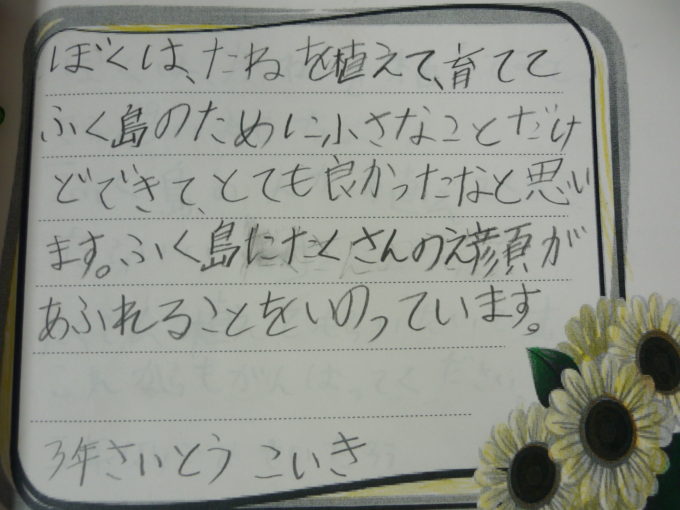 ぼくは、たねを植えて、育てて
ふく島のために小さなことだけ
どできて、とても良かったなと思い
ます。ふく島にたくさんのえ顔が
あふれることをいのっています。
3年さいとう こいき